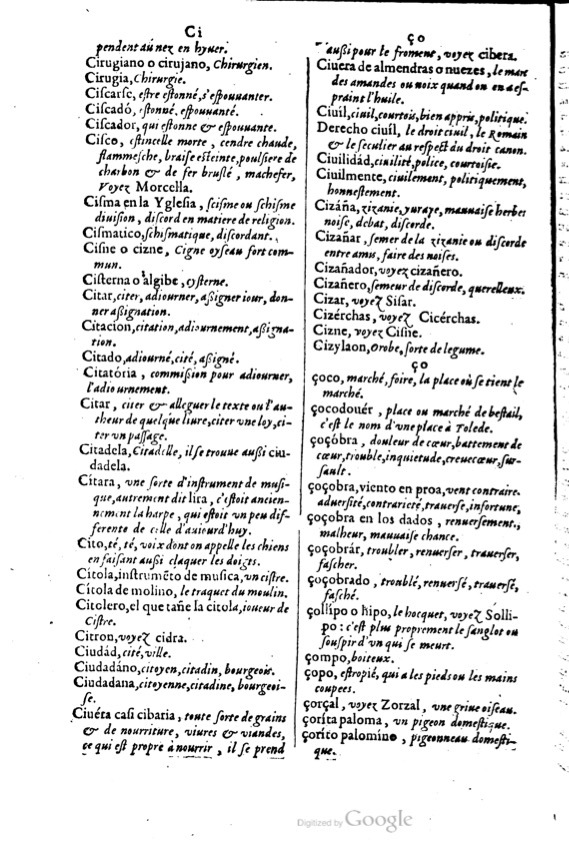 Ci
pendent au nez en hyuer.
Cirugiano o cirujano, Chirurgien.
Cirugia, Chirurgie.
Ciſcarſe, eſtre eſtonné, s'eſpouuanter.
Ciſcadó, eſtonné, eſpouuanté.
Ciſcador, qui eſtonne & eſpouuante.
Ciſco, eſtincelle morte, cendre chaude,
flammeſche, braiſe eſteinte, poulſiere de
charbon & de fer bruſlé, machefer,
Voyez Morcella.
Ciſma en la Ygleſia, ſciſme ou ſchiſme
diuiſion, diſcord en matiere de religion.
Ciſmatico, ſchiſmatique, diſcordant.
Ciſne o cizne, Cigne oyſeau fort com-
mun.
Ciſterna o algibe, cyſterne.
Citar, citer, adiourner, aßigner iour, don-
ner aßignation.
Citacion, citation, adiournement, aßigna-
tion.
Citado, adiourné, cité, aßigné.
Citatória, commißion pour adiourner,
l'adiournement.
Citar, citer & alleguer le texte ou l'au-
theur de quelque liure, citer vne loy, ci-
ter vn paſſage.
Citadela, Citadelle, il ſe trouue außi ciu-
dadela.
Cítara, vne ſorte d'inſtrument de muſi-
que, autrement dit lira, c'eſtoit ancien-
nement la harpe, qui eſtoit vn peu dif-
ferente de celle d'auiourd'huy.
Cito, té, té, voix dont on appelle les chiens
en faiſant außi claquer les doigts.
Cítola, inſtrumẽto de muſica, vn ciſtre.
Cítola de molino, le traquet du moulin.
Citolero, el que tañe la citola, ioueur de
Ciſtre.
Citron, voyez cidra.
Ciudád, cité, ville.
Ciudadáno, citoyen, citadin, bourgeois.
Ciudadana, citoyenne, citadine, bourgeoi-
ſe.
Ciuéra caſi cibaria, toute ſorte de grains
& de nourriture, viures & viandes,
ce qui eſt propre à nourrir, il ſe prend
ço
außi pour le froment, voyez cibera.
Ciuera de almendras o nuezes, le marc
des amandes ou noix quand on en a eſ-
praint l'huile.
Ciuíl, ciuil, courtois, bien appris, politique.
Derecho ciuíl, le droit ciuil, le Romain
& le ſeculier au reſpect du droit canon.
Ciuilidád, ciuilité, police, courtoiſie.
Ciuilmente, ciuilement, politiquement,
honneſtement.
Cizáña, zizanie, yuraye, mauuaiſe herbe:
noiſe, debat, diſcorde.
Cizañar, ſemer de la zizanie ou diſcorde
entre amis, faire des noiſes.
Cizañador, voyez cizañero.
Cizañero, ſemeur de diſcorde, querelleux.
Cizar, voyez Siſar.
Cizérchas, voyez Cicérchas.
Cizne, voyez Ciſne.
Cizylaon, Orobe, ſorte de legume.
ço
çoco, marché, foire, la place où ſe tient le
marché.
çocodouér, place ou marché de beſtail,
c'eſt le nom d'vne place à Tolede.
çoçóbra, douleur de cœur, battement de
cœur, trouble, inquietude, creuecœur, ſur-
ſault.
çoçobra, viento en proa, vent contraire.
aduerſité, contrarieté, trauerſe, infortune,
çoçobra en los dados, renuerſement,
malheur, mauuaiſe chance.
çoçobrár, troubler, renuerſer, trauerſer,
faſcher.
çoçobrado, troublé, renuerſé, trauerſé,
faſché.
çollípo o hipo, le hocquet, voyez Solli-
po: c'eſt plus proprement le ſanglot ou
ſouſpir d'vn qui ſe meurt.
çompo, boiteux.
çopo, eſtropié, qui a les pieds ou les mains
coupees.
çorçal, voyez Zorzal, vne griue oiſeau.
çoríta paloma, vn pigeon domeſtique.
çoríto palomino, pigeonneau domeſti-
que.
Digitized by Google